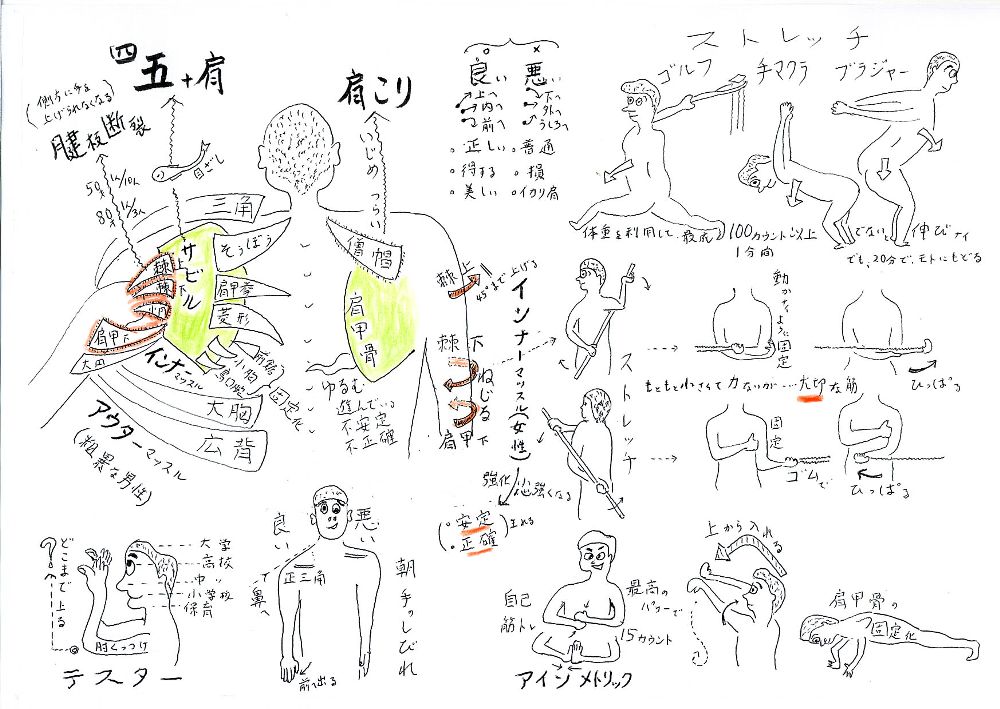 四
五+肩
(側方に手を
上げられなくなる)
腱板断裂
50才 1人/10人
80才 1人/3人
目ざし
肩こり
いじめ つらい
三角
そうぼう
肩甲挙
菱形
サビル
棘上
棘下
小円
肩甲下
大円
インナーマッスル
前鋸
小胸
烏口腕
固定化
大胸
広背
アウターマッスル
(粗暴な男性)
僧帽
肩甲骨
ゆるむ
進んでいる
不安定
不正確
棘上
45°まで上げる
棘下
ねじる
肩甲下
インナーマッスル(女性)
強化
心強くなる
・安定
・正確
生れる
○ ×
良い 悪い
上へ 下へ
内へ 外へ
前へ うしろへ
・正しい ・普通
・得する ・損
・美しい ・イカリ肩
ストレッチ
ゴルフ 手マクラ ブラジャー
体重を利用して、最低 100カウント以上 でない 伸びナイ
1分間
でも、20分で、モトにもどる
ストレッチ
動かないように固定
ひっぱる
もともと小さくて力ないが…大切な筋
固定
ゴムで
ひっぱる
?
どこまで上る
大学
高校
中〃
小学校
保育
肘くっつけ
テスター
良い 悪い
正三角
鼻へ
前へ出る
朝 手のしびれ
自己
筋トレ
最高の
パワーで
15カウント
アイソメトリック
上から入れる
肩甲骨の
固定化